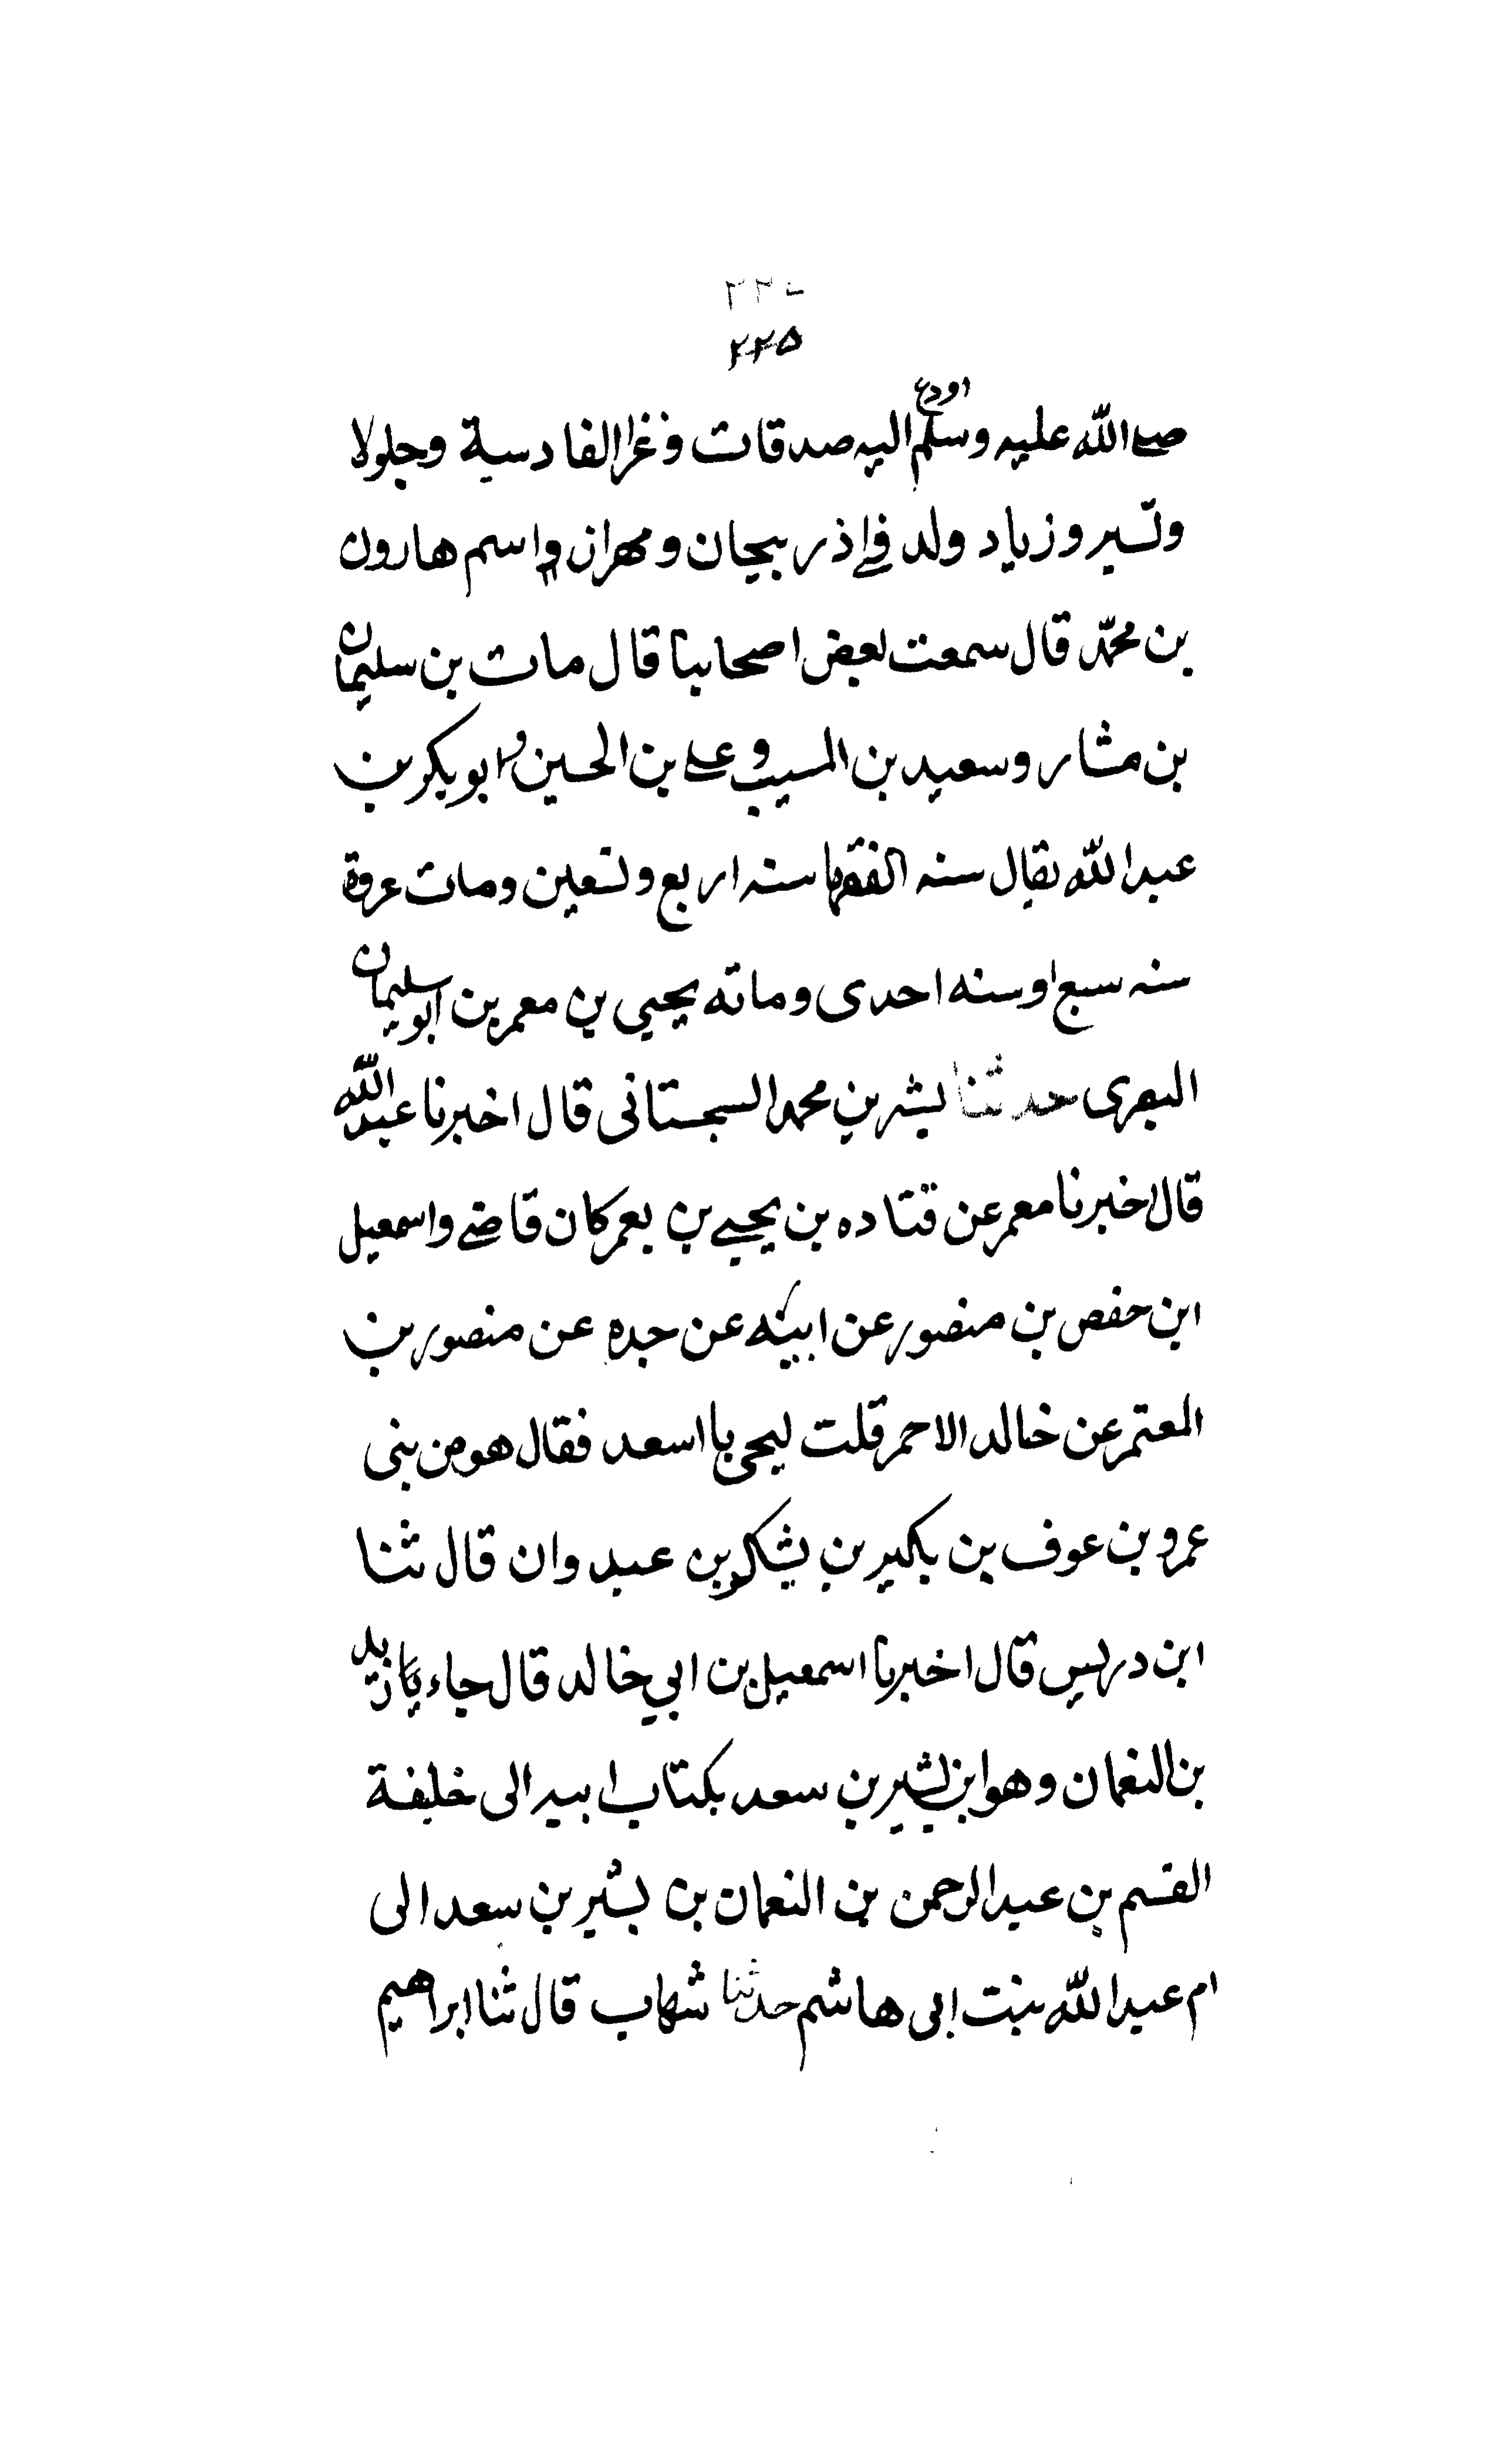 ٢٢٥
اودع
صلى الله عليه وسلم اليه صدقات وغزا القادسية وجلولا
وتستر وزياد ولد في اذربيجان ومهران واسم هارون
بن محمد قال سمعت بعض اصحابنا قال مات بن سليمان
بن مشار وسعيد بن المسيب وعلي بن الحسين وابو بكر بن
عبد الله يقال سنه الفقها سنه اربع وتسعين ومات عروة
سنه سبع او سنه احدى ومائه يحيي بن معمر بن ابو سليمان
البصرى حدثنا بشر بن محمد السجستانى قال اخبرنا عبد الله
قال اخبرنا معمر عن قتاده بن يحيي بن يعمر كان قاضي واسمعيل
ابن حفص بن منصور عن ابيه عن جده عن منصور بن
المعتمر عن خالد الاحمر قلت ليحى يا اسعد فقال هو من بنى
عمرو بن عوف بن بكير بن يشكر بن عبد وان قال ثنا
ابن دريس قال اخبرنا اسمعيل بن ابي خالد قال جاء يزيد
بن النعمان وهو ابن بشير بن سعد بكتاب ابيه الى خليفة
القسم بن عبد الرحمن بن النعمان بن بشير بن سعد الى
ام عبد الله بنت ابى هاشم حدثنا شهاب قال ثنا ابراهيم